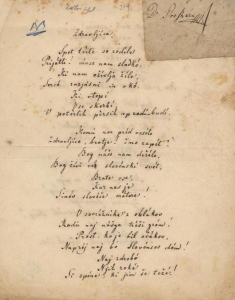 Zdravljica.
Spet trte so rodile
Prijatli! vince nam sladkó,
Ki nam oživlja žile,
Srcé razjásni in okó.
Ki utopi
Vse skerbi,
V potrtih prsih up budí.
Komú narpred veselo
Zdravljico, bratje! čmo zapét'?
Bog našo nam deželo,
Bog živi ves slovenski svet,
Brate vse,
Kar nas je
Sinóv sloveče matere!
V sovražnike z oblakov
Rodú naj naš'ga
Prost, ko je bil očakov,
Naprej naj bo Slovencov dom;
Naj zdrobé
Njih roké
Si spone, ki jim še težé!